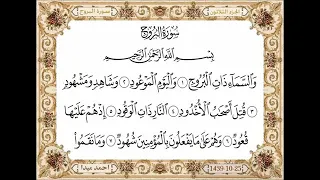 الجزء الثلاثون
سورة البروج
سُورَةُ الْبُرُوجِ
بِسْمِ اللَّهِ الرَّحْمَٰنِ الرَّحِيمِ
وَالسَّمَاءِ ذَاتِ الْبُرُوجِ ١ وَالْيَوْمِ الْمَوْعُودِ ٢ وَشَاهِدٍ وَمَشْهُودٍ
٣ قُتِلَ أَصْحَابُ الْأُخْدُودِ ٤ النَّارِ ذَاتِ الْوَقُودِ ٥ إِذْ هُمْ عَلَيْهَا
قُعُودٌ ٦ وَهُمْ عَلَىٰ مَا يَفْعَلُونَ بِالْمُؤْمِنِينَ شُهُودٌ ٧ وَمَا نَقَمُوا
1439-10-25